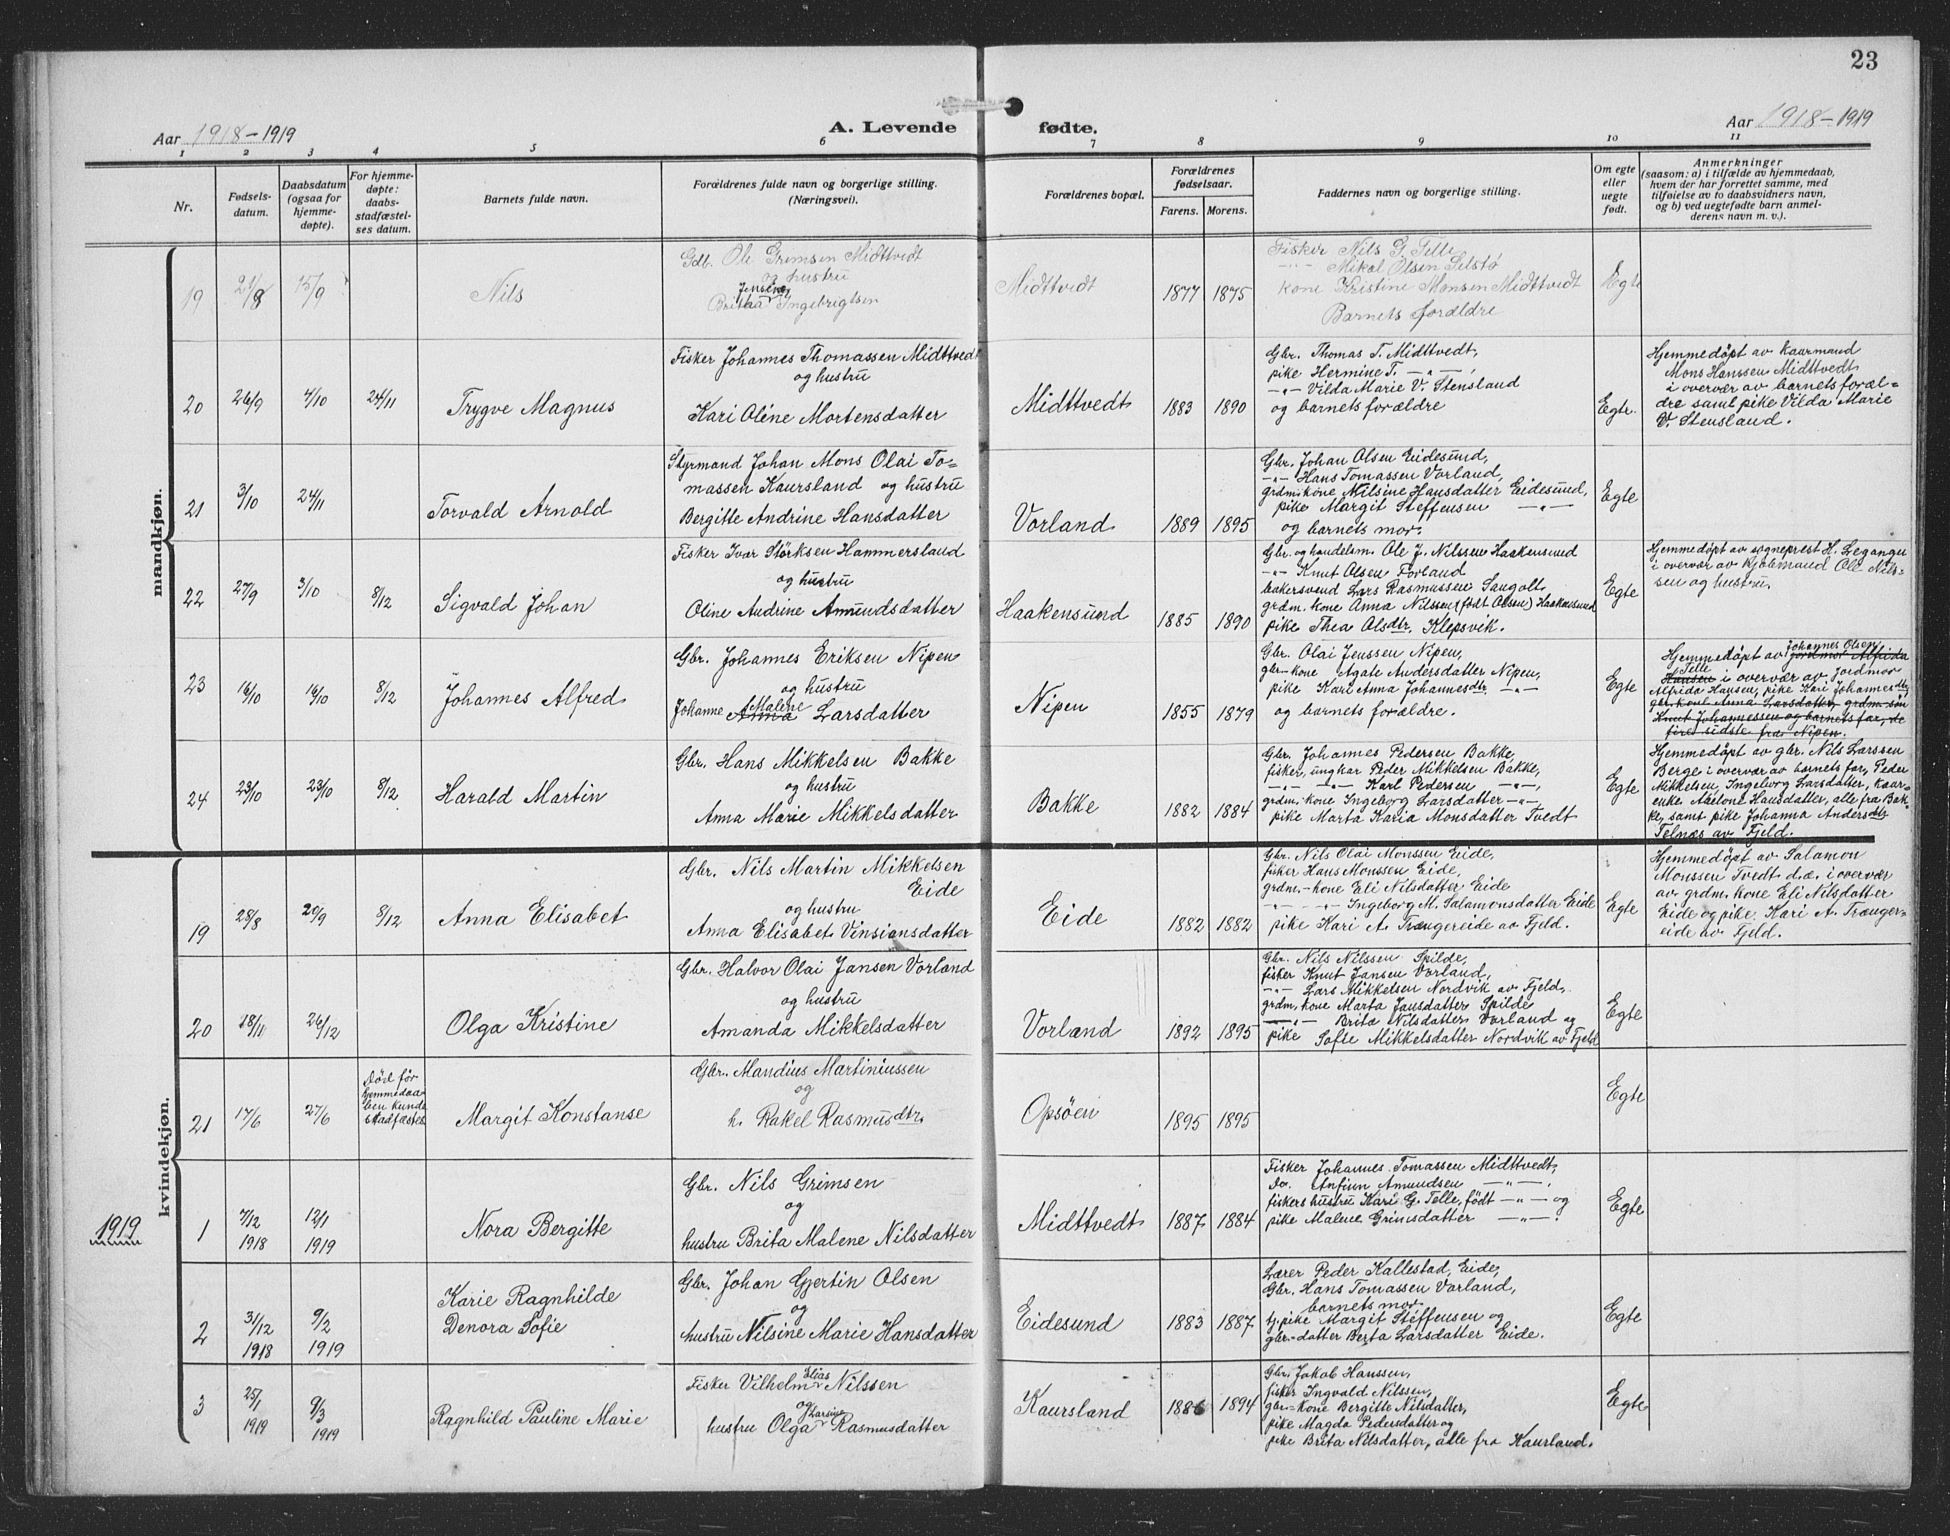 23
Aar 1918-1919
A. Levende
fødte.
Aar 1918-1919
1 2 3 4 5 6 7 8 9 10 11
Nr.
Fødsels-
datum.
Daabsdatum
(ogsaa for
hjemme-
døpte).
For hjemme-
døpte:
daabs-
stadfæstel-
ses datum.
Barnets fulde navn.
Forældrenes fulde navn og borgerlige stilling.
(Næringsvei).
Forældrenes bopæl.
Forældrenes
fødselsaar.
Farens. Morens.
Faddernes navn og borgerlige stilling.
Om egte
eller
uegte
født.
Anmerkninger
(saasom: a) i tilfælde av hjemmedaab,
hvem der har forrettet samme, med
tilføielse av to daabsvidners navn,
og b) ved uegtefødte barn anmel-
derens navn m. v.).
mandkjøn.
19
21/8
15/9
Nils
Gdb. Ole Grimsen Midttvedt
og hustru
Jensine
Britha Ingebrigtsen
Midttvedt
1877 1875
Fisker Nils G. Telle
-"- Mikal Olsen Selstø
kone Kristine Monsen Midttvedt
Barnets forældre
Egte
20
26/9
4/10
24/11
Trygve Magnus
Fisker Johannes Thomassen Midttvedt
og hustru
Kari Oléne Mortensdatter
Midttvedt
1883 1890
Gbr. Thomas T. Midttvedt,
pike Hermine T. -"-,
-"- Vilda Marie V. Stensland
og barnets forældre
Egte.
Hjemmedöpt av kaarmand
Mons Hanssen Midttvedt
i overvær av barnets foræl-
dre samt pike Vilda Marie
V. Stensland.
21
3/10
24/11
Torvald Arnold
Styrmand Johan Mons Olai To-
massen Kaursland og hustru
Bergitte Andrine Hansdatter
Vorland
1889 1895
Gbr. Johan Olsen Eidesund,
-"- Hans Tomassen Vorland,
grdm. kone Nilsine Hansdatter Eidesund,
pike Margit Steffensen -"-
og barnets mor.
Egte
22
27/9
3/10
8/12
Sigvald Johan
Fisker Ivar Størksen Hammersland
og hustru
Oline Andrine Amundsdatter
Haakensund
1885 1890
Gbr. og handelsm. Ole J. Nilssen Haakensund
-"- Knut Olsen Forland
bakersvend Lars Rasmussen Saugolt,
grdm. kone Anna Nilssen (født Olsen) Haakensund
pike Thea Olsdtr. Klepsvik.
Egte
Hjemmedöpt av sogneprest H. Legangu
i overvær av kjøbmand Ole Nils-
sen og hustru.
23
16/10
16/10
8/12
Johannes Alfred
Gbr. Johannes Eriksen Nipen
og hustru
Malene
Johanne Anna Larsdatter
Nipen
1855 1879
Gbr. Olai Jenssen Nipen,
gbr-kone Agate Andersdatter Nipen,
pike Kari Anna Johannesdtr -"-
og barnets forældre.
Egte
Johannes Olsen
Hjemmedöpt av jordmor Alfrida
Telle
Hansen i overvær av jordmor
Alfrida Hansen, pike Kari Johannesdtr,
gbr. kone Anna Larsdatter, grdm. søn
Knut Johannessen og barnets far, de
fire sidste fra Nipen.
24
23/10
23/10
8/12
Harald Martin
Gbr. Hans Mikkelsen Bakke
og hustru
Anna Marie Mikkelsdatter
Bakke
1882 1884
Gbr. Johannes Pedersen Bakke,
fisker, ungkar Peder Mikkelsen Bakke,
-"- -"- Karl Pedersen -"-,
grdm. kone Ingeborg Larsdatter -"-,
pike Marta Karia Monsdatter Tvedt
Egte
Hjemmedöpt av gbr. Nils Larssen
Berge i overvær av barnets far, Peder
Mikkelsen, Ingeborg Larsdatter, kaar-
enke Hansdatter, alle fra Bak-
ke, samt pike Johanna Andersdtr
Telnæs av Fjeld.
kvindekjøn.
19
28/8
29/9
8/12
Anna Elisabet
Gbr. Nils Martin Mikkelsen
Eide
og hustru
Anna Elisabet Vinsiansdatter
Eide
1882 1882
Gbr. Nils Olai Monssen Eide,
fisker Hans Monssen Eide,
grdm.-kone Eli Nilsdatter Eide
-"- -"- Ingeborg M. Salamonsdatter Eide
pike Kari A. Trængereide av Fjeld.
Egte
Hjemmedöpt av Salamon
Monssen Tvedt d.æ. i overvær
av grdm. kone Eli Nilsdatter
Eide og pike Kari A. Trænger-
eide av Fjeld.
20
28/11
26/12
Olga Kristine
Gbr. Halvor Olai Jansen Vorland
og hustru
Amanda Mikkelsdatter
Vorland
1892 1895
Gbr. Nils Nilssen Spilde,
fisker Knut Jansen Vorland,
-"- Lars Mikkelsen Nordvik av Fjeld,
grdm. kone Marta Jansdatter Spilde
-"- Brita Nilsdatter Vorland og
pike Sofie Mikkelsdatter Nordvik av Fjeld
Egte
21
17/6
27/6
Död før
hjemmedaa-
ben kunde
stadfæstes
Margit Konstanse
Gbr. Mandius Martiniussen
og
h. Rakel Rasmusdtr.
Opsöen
1895 1895
Egte
1919
1
7/12
1918
12/1
1919
Nora Bergitte
Gbr. Nils Grimsen
og
hustru Brita Malene Nilsdatter
Midttvedt
1887 1884
Fisker Johannes Tomassen Midttvedt,
do. Anfinn Amundsen -"-,
fiskers hustru Kari G. Telle, født -"- og
pike Malene Grimsdatter -"-.
Egte
2
31/12
1918
9/2
1919
Karie Ragnhilde
Denora Sofie
Gbr. Johan Gjertin Olsen
og
hustru Nilsine Marie Hansdatter
Eidesund
1883 1887
Lærer Peder Kallestad, Eide,
Gbr. Hans Tomassen Vorland,
barnets mor
tj.pike Margit Steffensen og
gbr.-datter Berta Larsdatter Eide.
Egte
3
25/1
1919
9/3
1919
Ragnhild Pauline Marie
Elias
Fisker Vilhelm Nilssen
og
Larsine
hustru Olga Rasmusdatter
Kaursland
1886 1894
Gbr. Jakob Hanssen,
fisker Ingvald Nilssen,
gbr-kone Bergitte Nilsdatter,
pike Magda Pedersdatter og
pike Brita Nilsdatter, alle fra Kaursland.
Egte